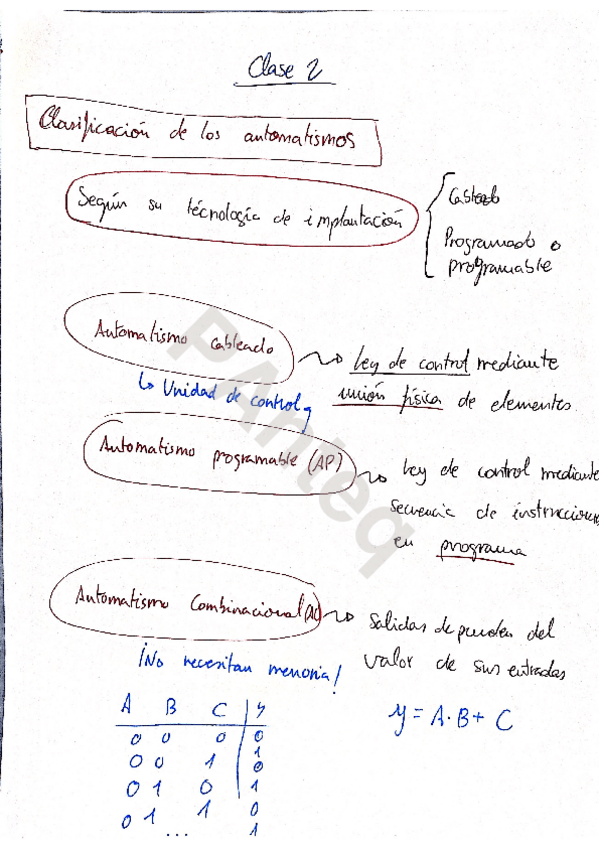 Clase 2
Clasificación de los automatismos
Según su técnología de implantación
Cableado
Programado o
programable
Automatismo cableado
ley de control mediante
unión física de elementos.
↳ Unidad de control
Automatismo programable (AP)
ley de control mediante
secuencia de instrucciones
en programa
Automatismo Combinacional (AC)
Salidas dependen del
valor de sus entradas
¡No necesitan memoria!
y = A·B + C
A B C y
0 0 0 0
0 0 1 1
0 1 0 0
0 1 1 1
...
PAnteq